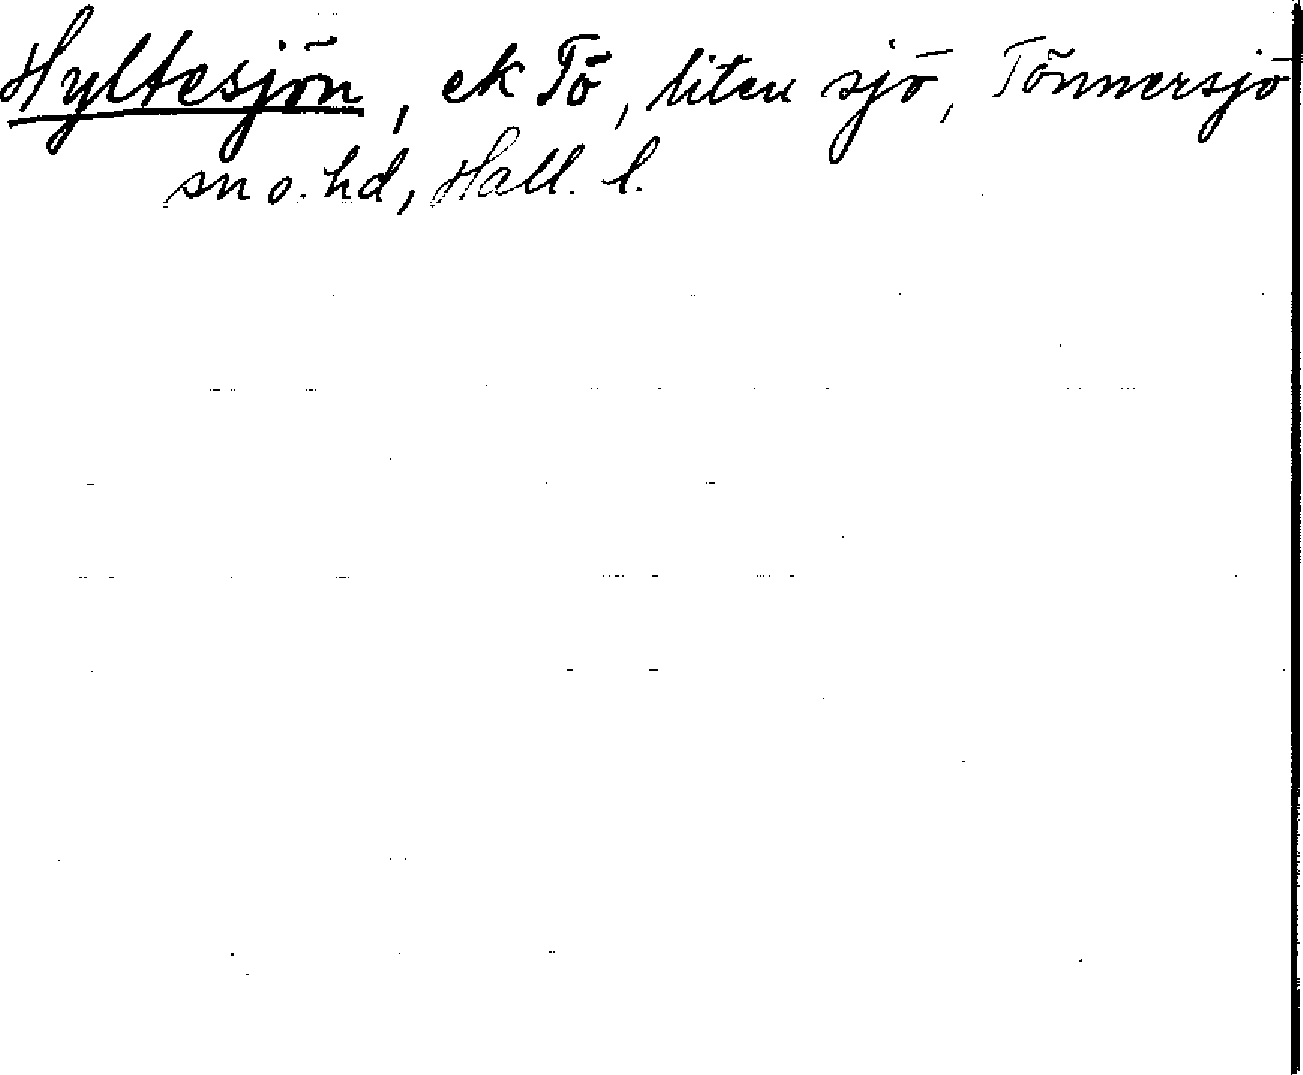 Hyltesjön, ek Tö, liten sjö, Tönnersjö
sn o. hd, Hall. l.